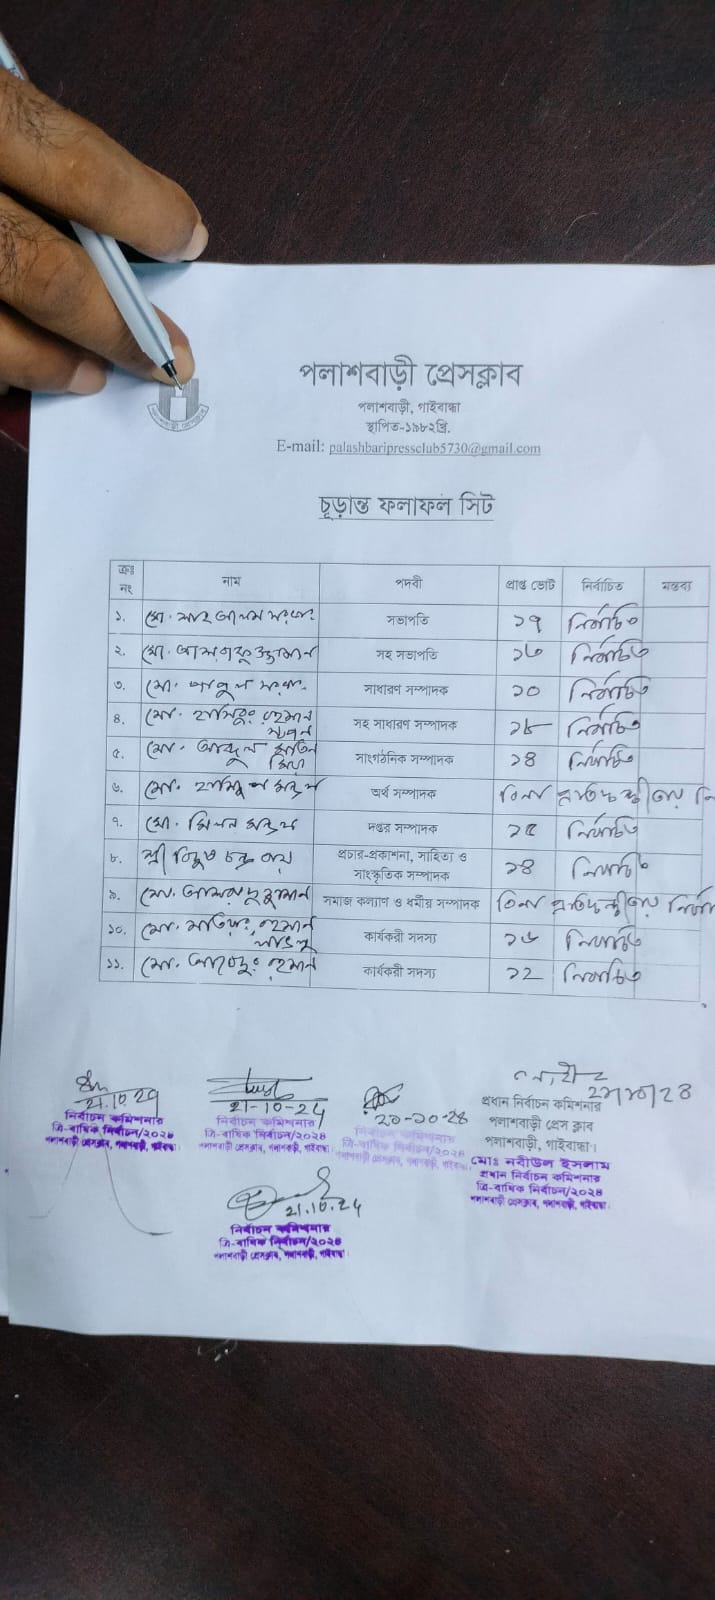 পলাশবাড়ী প্রেসক্লাব
পলাশবাড়ী, গাইবান্ধা
স্থাপিত-১৯৮২খ্রি.
E-mail: palashbaripressclub5730@gmail.com
চূড়ান্ত ফলাফল সিট
ক্রঃ নং নাম পদবী প্রাপ্ত ভোট নির্বাচিত মন্তব্য
১. মো. শাহ আলম সরকার সভাপতি ১৭ নির্বাচিত
২. মো. সহ সভাপতি ১৬ নির্বাচিত
৩. মো. সরকার সাধারণ সম্পাদক ১০ নির্বাচিত
৪. মো. হাসিবুর রহমান স্বপন সহ সাধারণ সম্পাদক ১৮ নির্বাচিত
৫. মো. আব্দুল মতিন মিয়া সাংগঠনিক সম্পাদক ১৪ নির্বাচিত
৬. মো. মন্ডল অর্থ সম্পাদক বিনা প্রতিদ্বন্দ্বীতায় নি
৭. মো. মিলন মন্ডল দপ্তর সম্পাদক ১৫ নির্বাচিত
৮. শ্রী চন্দ্র রায় প্রচার-প্রকাশনা, সাহিত্য ও
সাংস্কৃতিক সম্পাদক ১৪ নির্বাচিত
৯. মো. আসাদুজ্জামান সমাজ কল্যাণ ও ধর্মীয় সম্পাদক বিনা প্রতিদ্বন্দ্বীতায় নির্বা
১০. মো. রহমান কার্যকরী সদস্য ১৬ নির্বাচিত
১১. মো. রহমান কার্যকরী সদস্য ১২ নির্বাচিত
21.10.24
নির্বাচন কমিশনার
ত্রি-বার্ষিক নির্বাচন/২০২৪
পলাশবাড়ী প্রেসক্লাব, পলাশবাড়ী, গাইবান্ধা।
21-10-24
নির্বাচন কমিশনার
ত্রি-বার্ষিক নির্বাচন/২০২৪
পলাশবাড়ী প্রেসক্লাব, পলাশবাড়ী, গাইবান্ধা।
২১-১০-২৪
নির্বাচন কমিশনার
ত্রি-বার্ষিক নির্বাচন/২০২৪
পলাশবাড়ী প্রেসক্লাব, পলাশবাড়ী, গাইবান্ধা।
২১/১০/২৪
প্রধান নির্বাচন কমিশনার
পলাশবাড়ী প্রেস ক্লাব
পলাশবাড়ী, গাইবান্ধা।
মোঃ নবীউল ইসলাম
প্রধান নির্বাচন কমিশনার
ত্রি-বার্ষিক নির্বাচন/২০২৪
পলাশবাড়ী প্রেসক্লাব, পলাশবাড়ী, গাইবান্ধা।
21.10.24
নির্বাচন কমিশনার
ত্রি-বার্ষিক নির্বাচন/২০২৪
পলাশবাড়ী প্রেসক্লাব, পলাশবাড়ী, গাইবান্ধা।